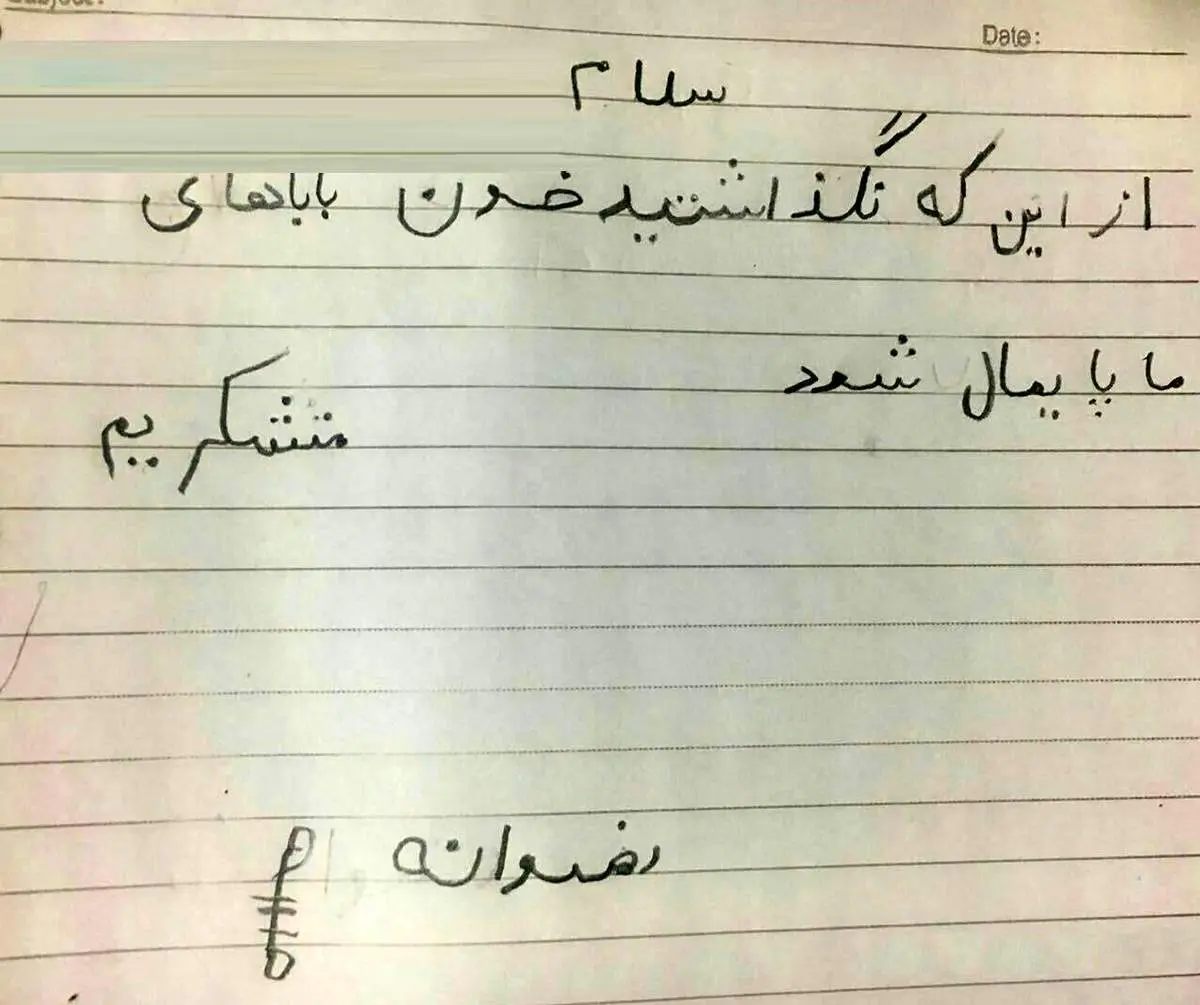 Date:
سلام
از این که نگذاشتید خون باباهای
ما پایمال شود
متشکریم
رضوانه